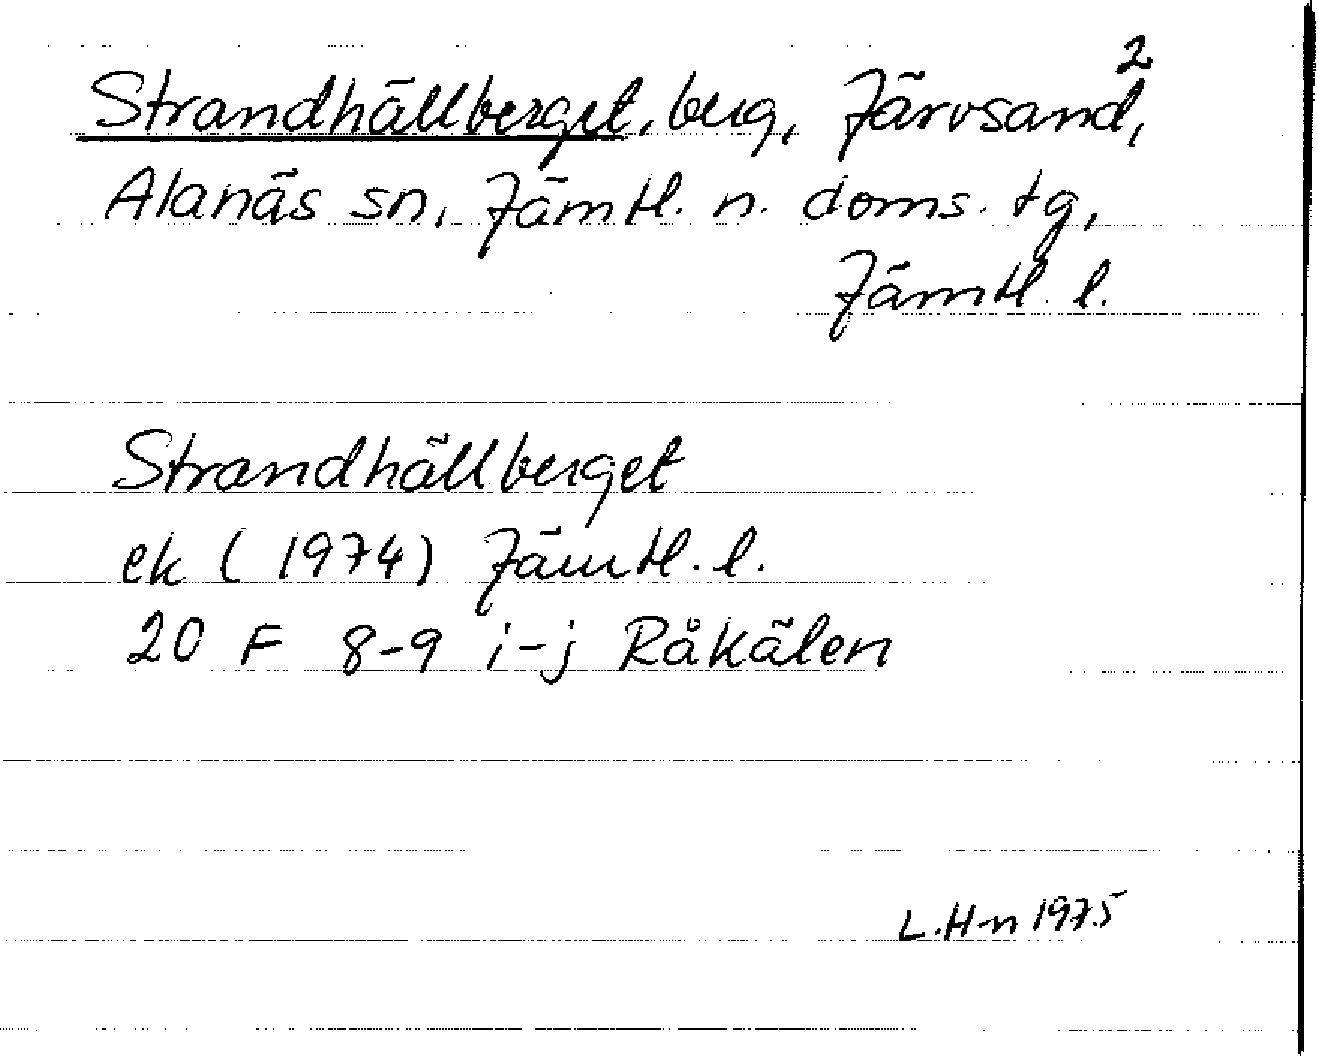 Strandhällberget, berg, Järvsand²,
Alanäs sn, Jämtl. n. doms. tg,
Jämtl. l.
Strandhällberget
ek (1974) Jämtl. l.
20 F 8-9 i-j Råkälen
L.H-n 1975